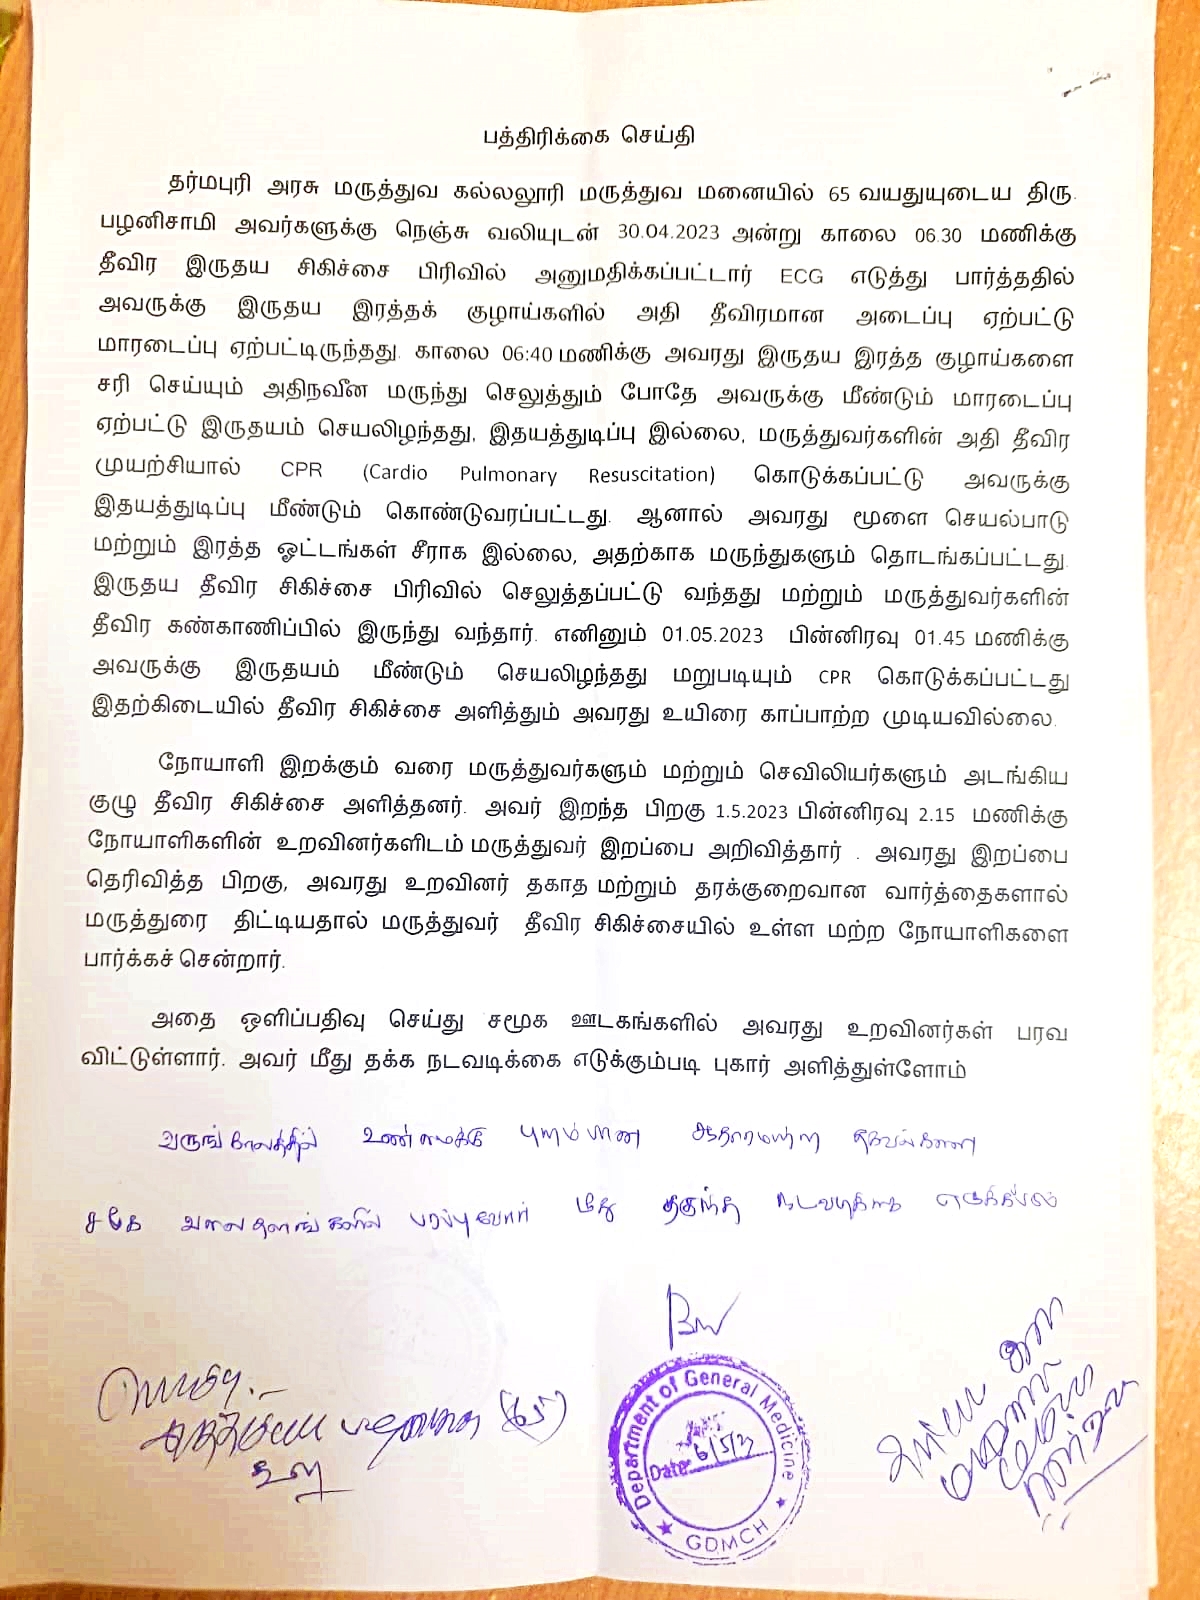 பத்திரிக்கை செய்தி
தர்மபுரி அரசு மருத்துவ கல்லலூரி மருத்துவ மனையில் 65 வயதுயுடைய திரு.
பழனிசாமி அவர்களுக்கு நெஞ்சு வலியுடன் 30.04.2023 அன்று காலை 06.30 மணிக்கு
தீவிர இருதய சிகிச்சை பிரிவில் அனுமதிக்கப்பட்டார் ECG எடுத்து பார்த்ததில்
அவருக்கு இருதய இரத்தக் குழாய்களில் அதி தீவிரமான அடைப்பு ஏற்பட்டு
மாரடைப்பு ஏற்பட்டிருந்தது. காலை 06:40 மணிக்கு அவரது இருதய இரத்த குழாய்களை
சரி செய்யும் அதிநவீன மருந்து செலுத்தும் போதே அவருக்கு மீண்டும் மாரடைப்பு
ஏற்பட்டு இருதயம் செயலிழந்தது, இதயத்துடிப்பு இல்லை, மருத்துவர்களின் அதி தீவிர
முயற்சியால் CPR (Cardio Pulmonary Resuscitation) கொடுக்கப்பட்டு அவருக்கு
இதயத்துடிப்பு மீண்டும் கொண்டுவரப்பட்டது. ஆனால் அவரது மூளை செயல்பாடு
மற்றும் இரத்த ஓட்டங்கள் சீராக இல்லை, அதற்காக மருந்துகளும் தொடங்கப்பட்டது.
இருதய தீவிர சிகிச்சை பிரிவில் செலுத்தப்பட்டு வந்தது மற்றும் மருத்துவர்களின்
தீவிர கண்காணிப்பில் இருந்து வந்தார். எனினும் 01.05.2023 பின்னிரவு 01.45 மணிக்கு
அவருக்கு இருதயம் மீண்டும் செயலிழந்தது மறுபடியும் CPR கொடுக்கப்பட்டது
இதற்கிடையில் தீவிர சிகிச்சை அளித்தும் அவரது உயிரை காப்பாற்ற முடியவில்லை.
நோயாளி இறக்கும் வரை மருத்துவர்களும் மற்றும் செவிலியர்களும் அடங்கிய
குழு தீவிர சிகிச்சை அளித்தனர். அவர் இறந்த பிறகு 1.5.2023 பின்னிரவு 2.15 மணிக்கு
நோயாளிகளின் உறவினர்களிடம் மருத்துவர் இறப்பை அறிவித்தார் . அவரது இறப்பை
தெரிவித்த பிறகு, அவரது உறவினர் தகாத மற்றும் தரக்குறைவான வார்த்தைகளால்
மருத்துரை திட்டியதால் மருத்துவர் தீவிர சிகிச்சையில் உள்ள மற்ற நோயாளிகளை
பார்க்கச் சென்றார்.
அதை ஒளிப்பதிவு செய்து சமூக ஊடகங்களில் அவரது உறவினர்கள் பரவ
விட்டுள்ளார். அவர் மீது தக்க நடவடிக்கை எடுக்கும்படி புகார் அளித்துள்ளோம்
வருங்காலத்தில் உண்மைக்கு புறம்பான ஆதாரமற்ற தகவல்களை
வலைதளங்களில் பரப்புவோர் மீது தகுந்த நடவடிக்கை எடுக்கப்படும்
Department of General Medicine
Date 6/5/23
GDMCH